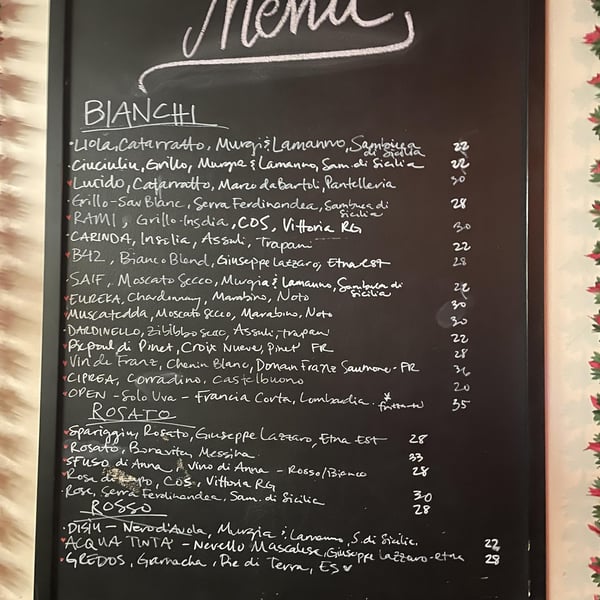 Menu
BIANCHI
·LIOLA, Catarratto, Murgi & Lamanno, Sambuca di Sicilia 22
·Ciuciuliu, Grillo, Murgia & Lamanno, Sam. di Sicilia 22
Lucido, Catarratto, Marco de Bartoli, Pantelleria 30
·Grillo-Sauv Blanc, Serra Ferdinandea, Sambuca di Sicilia 28
RAMI, Grillo-Insolia, COS, Vittoria RG 30
·CARINDA, Insolia, Assuli, Trapani 22
B42, Bianco Blend, Giuseppe Lazzaro, Etna Est 28
·SAIF, Moscato Secco, Murgia & Lamanno, Sambuca di Sicilia 22
EUREKA, Chardonnay, Marabino, Noto 30
Muscatedda, Moscato Secco, Marabino, Noto 30
·DARDINELLO, Zibibbo secco, Assuli, trapani 22
Picpoul di Pinet, Croix Nueve, Pinet FR 28
Vin de Franz, Chenin Blanc, Domain Franz Saumone - FR 36
CIPREA, Corradino, Castelbuono 20
OPEN - Solo Uva - Francia Corta, Lombardia * frizzante 35
ROSATO
Spariggiu, Rosato, Giuseppe Lazzaro, Etna Est 28
Rosato, Bonavita, Messina 33
SFUSO di Anna, Vino di Anna - Rosso/Bianco 28
Rosa di, COS, Vittoria RG 30
Rose, Serra Ferdinandea, Sam. di Sicilia 28
ROSSO
·DISIU - Nero d'Avola, Murgia & Lamanno, S. di Sicilia 22
ACQUA TINTA - Nerello Mascalese, Giuseppe Lazzaro - Etna 28
GREDOS, Garnacha, Pie di Terra, ES